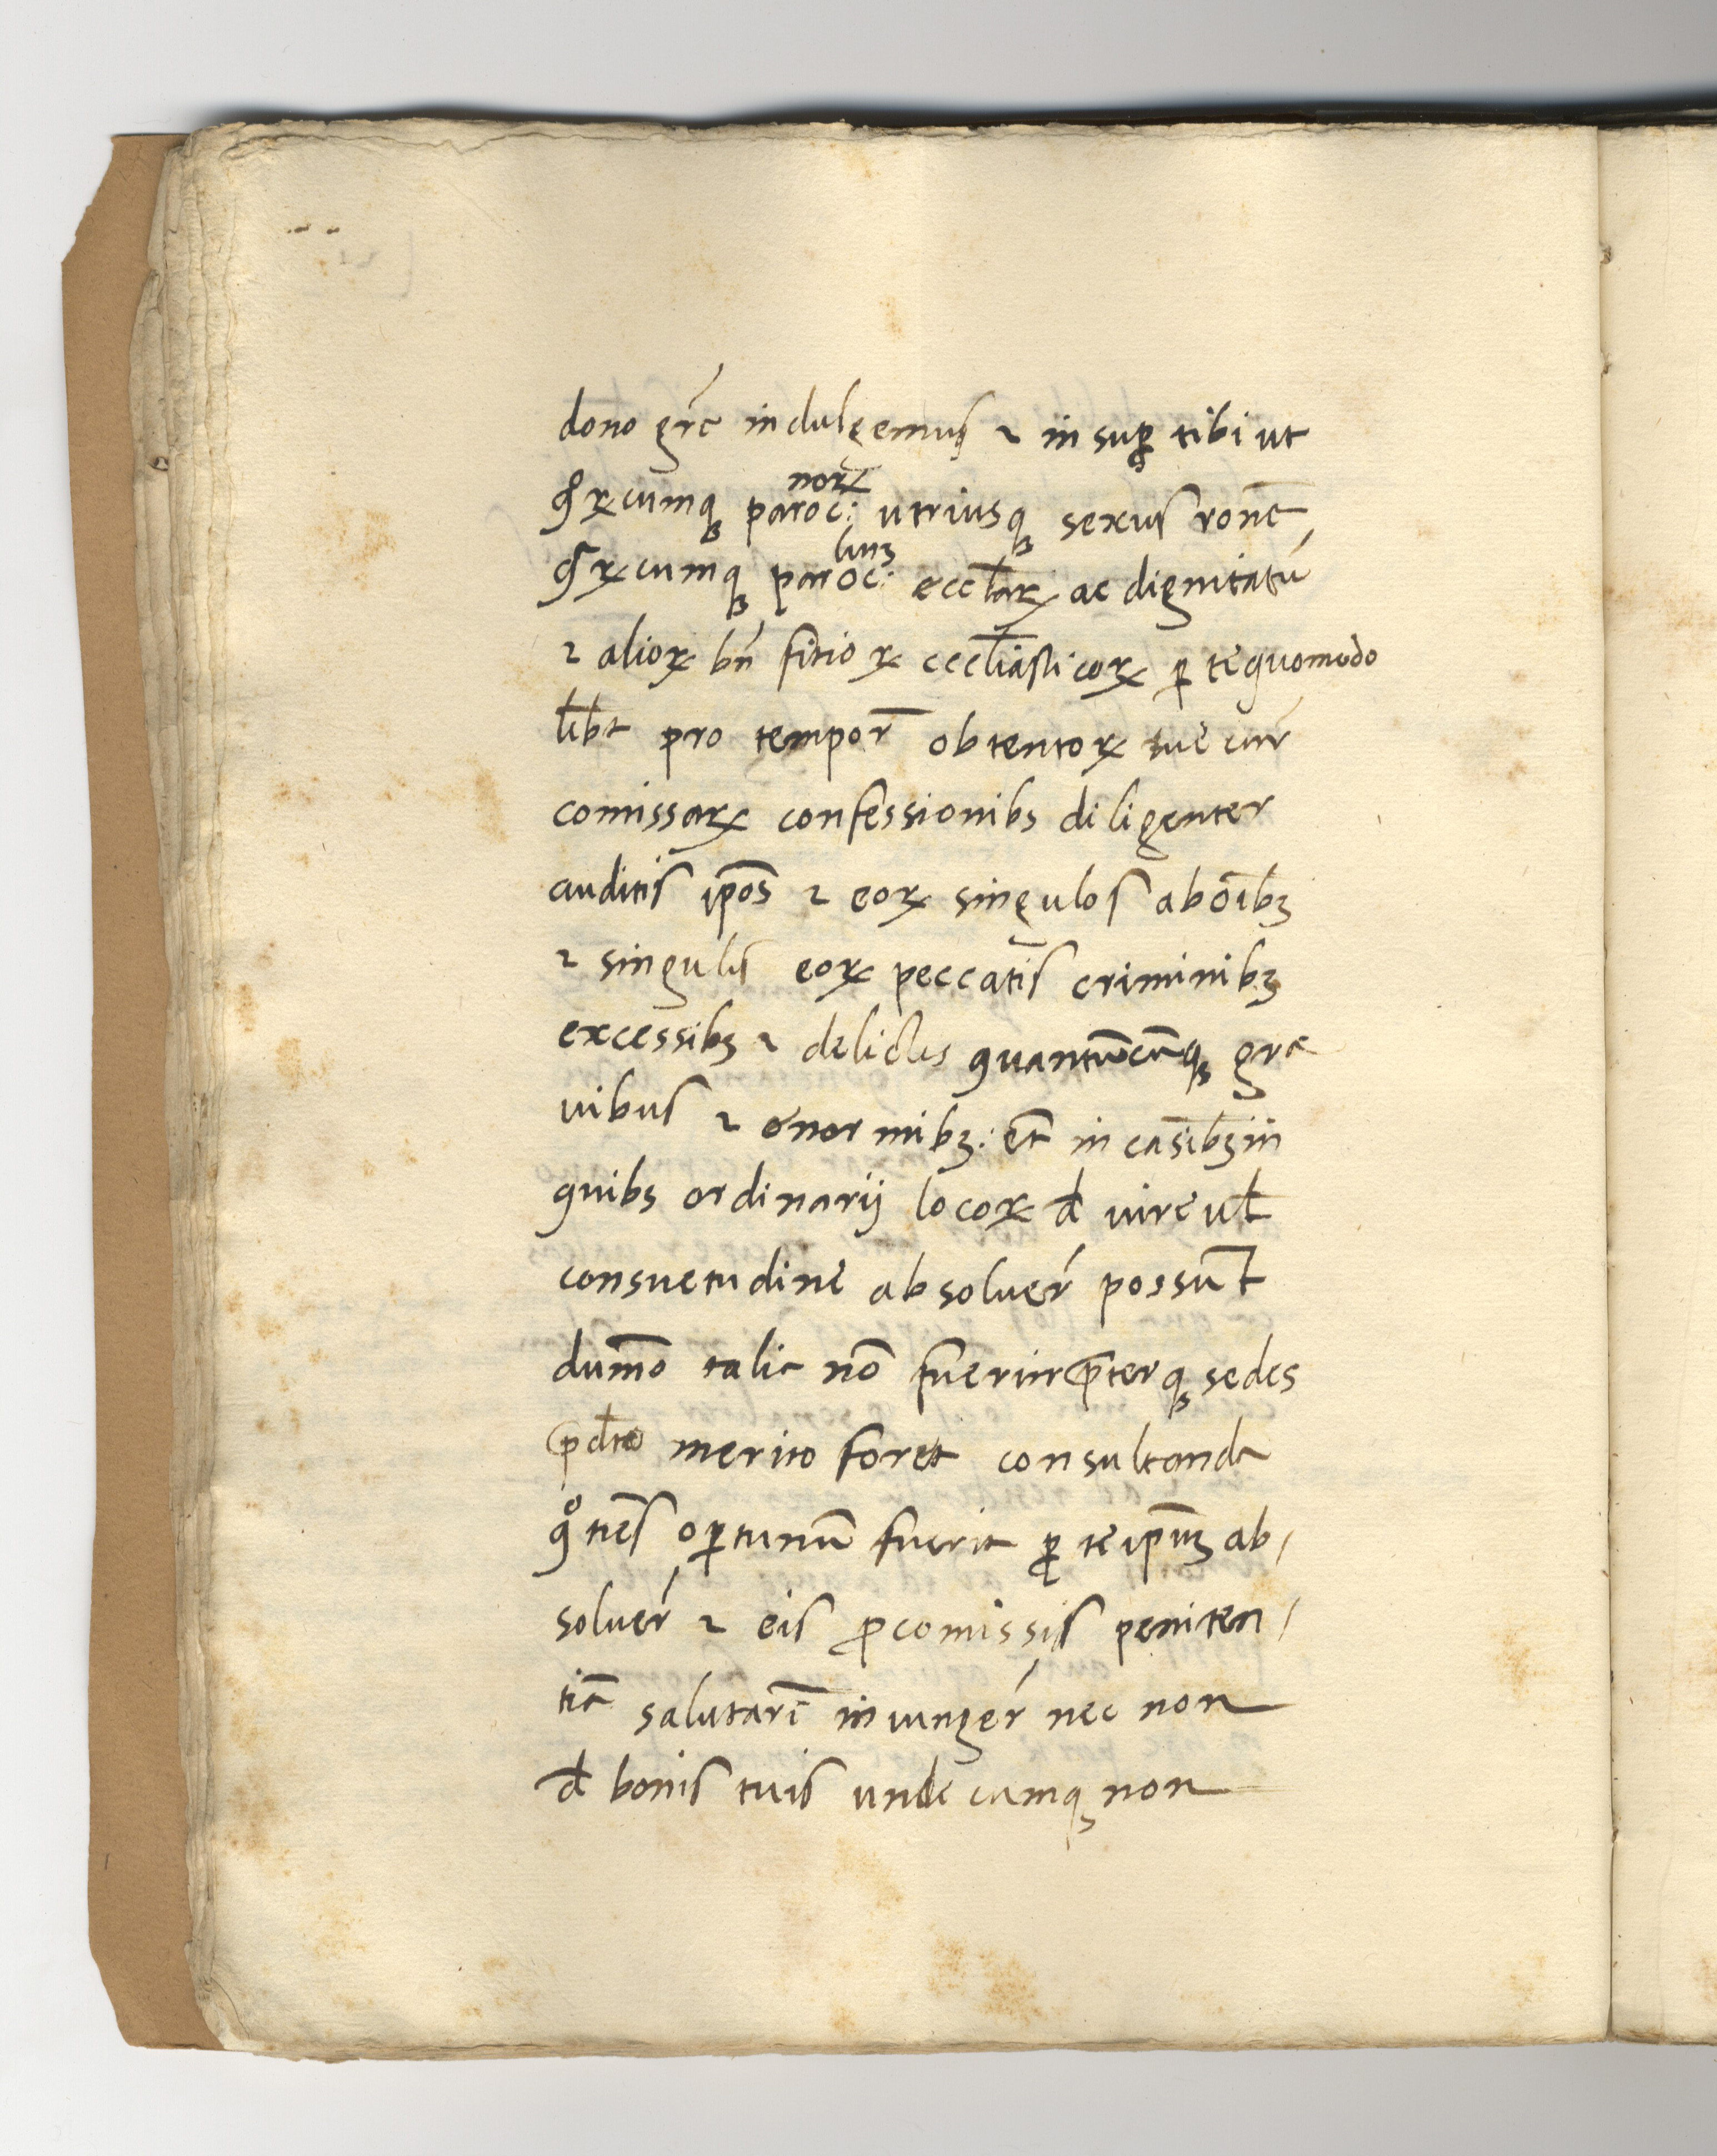 dono grē indulgemus ⁊ insuꝑ tibi ut
qͦꝝcumqꝫ paroc: noꝝ utriusqꝫ sexus ronē
qͦꝝcumqꝫ paroc: liuꝫ eccl̄aꝝ ac dignitatū
⁊ alioꝝ bn̄ fitioꝝ eccl̄iasticoꝝ ꝑ te quomodo
lib̄t pro tempor̄ obtentoꝝ tue cur̄
comissaꝝ confessionibs diligenter
auditis ip̄os ⁊ eoꝝ singulos ab oībꝫ
⁊ singulis eoꝝ peccatis criminibꝫ
excessibꝫ ⁊ delictis quantūcūqꝫ gra
uibus ⁊ enormibꝫ: et̄ in casibꝫ in
quibs ordinarij locoꝝ đ iure ul̄
consuetudine absoluer̄ possūt
dum̄o talia nō fuerint p̄terqꝫ sedes
p̄dta merito foret consultanda
qͦtiēs oꝑtunū fuerit ꝑ te ip̄uꝫ ab/
soluer̄ ⁊ eis ꝓ comissis peniten/
tiā salutarē iniunger̄ nec non
đ bonis tuis undecumqꝫ non